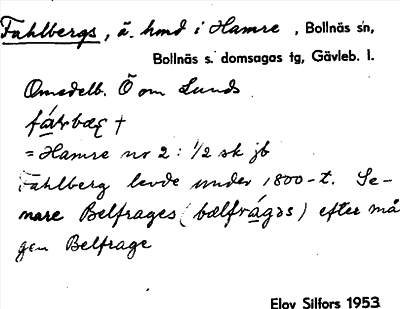 Fahlbergs, ä. hmd i Hamre, Bollnäs sn,
Bollnäs s. domsagas tg, Gävleb. l.
Omedelb. Ö om Lunds.
fárbæg †
= Hamre nr 2: 1/2 sk jb
Fahlberg levde under 1800-t. Se-
nare Belfrages (bælfrágəs) efter må
gen Belfrage
Elov Silfors 1953